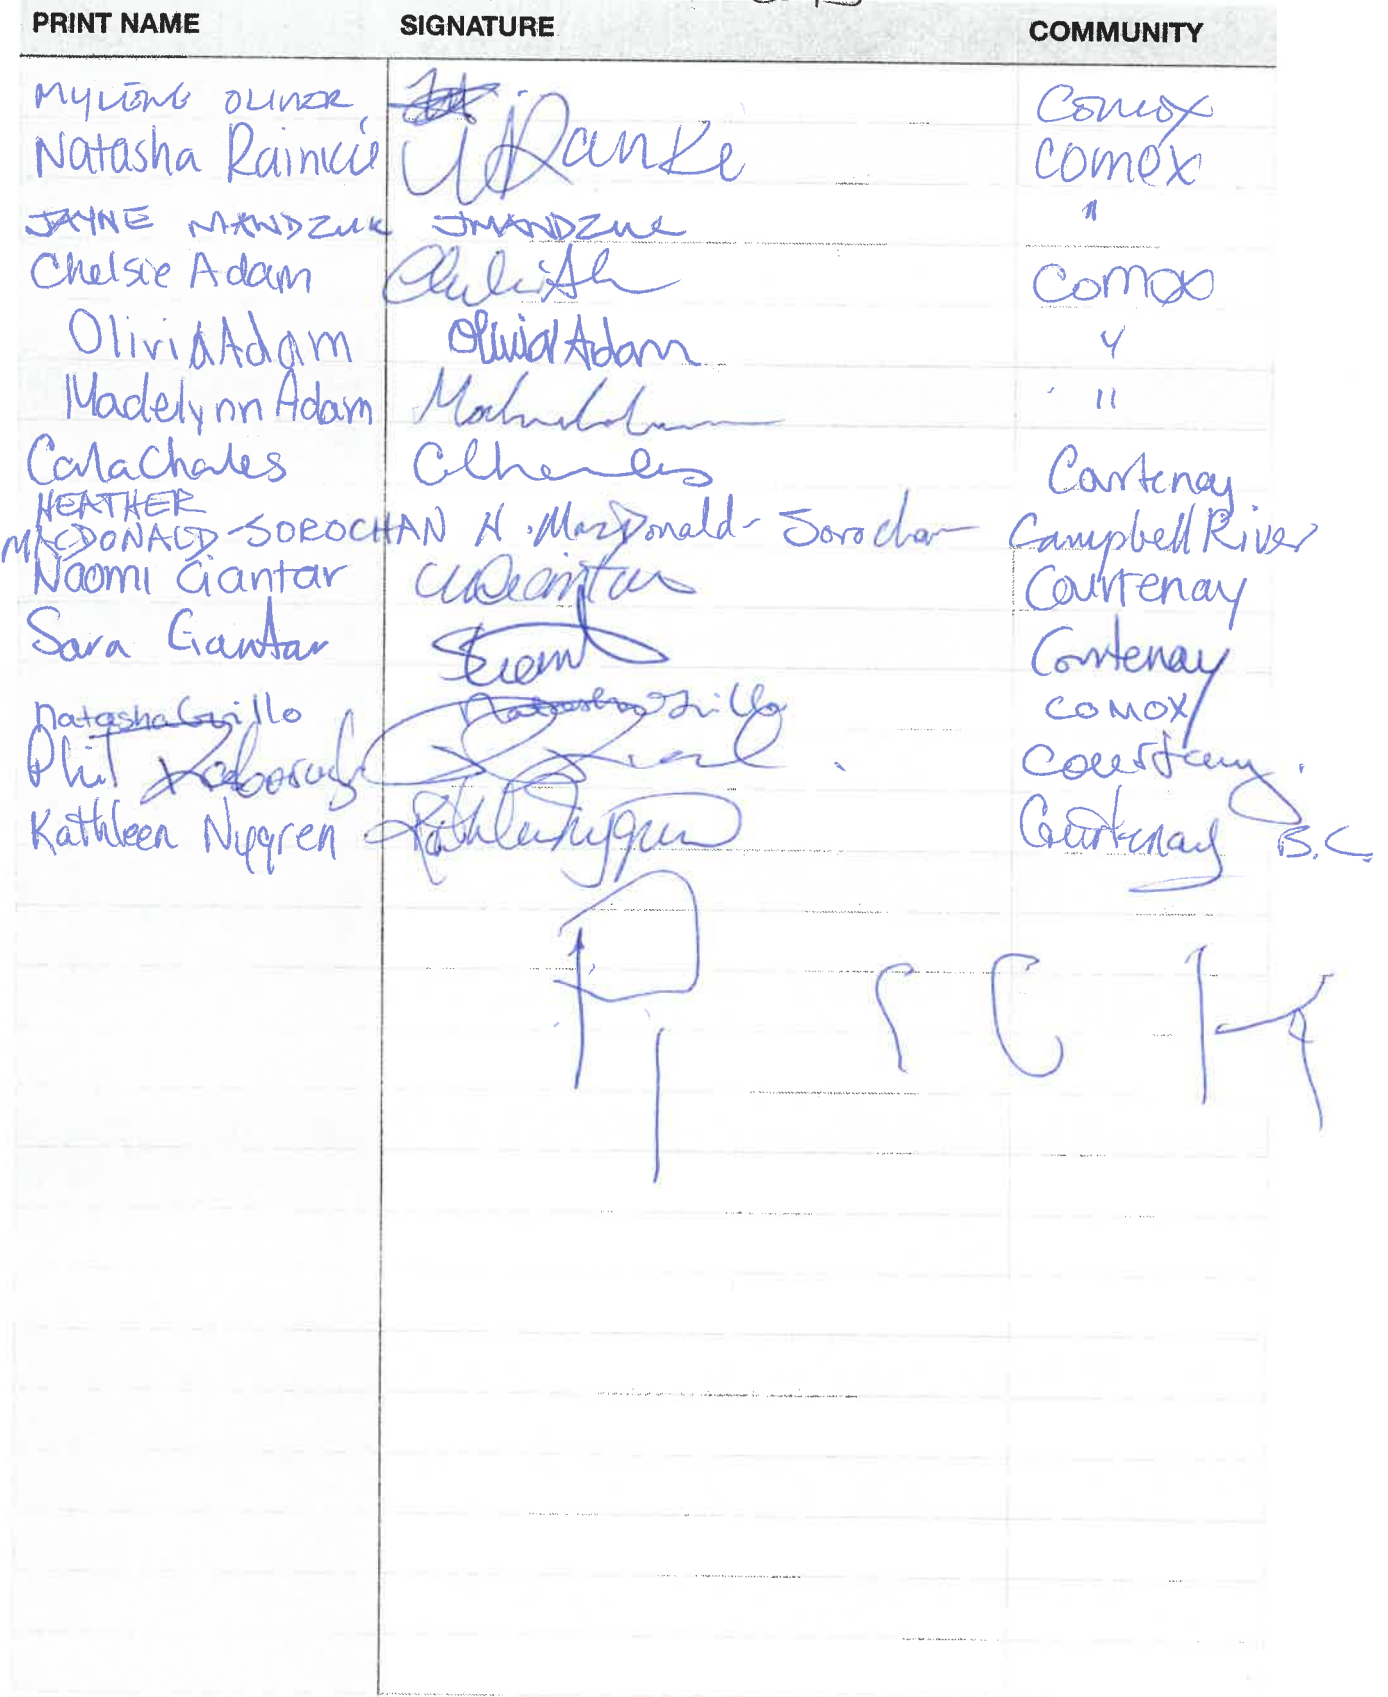 PRINT NAME SIGNATURE COMMUNITY
MYLÈNE OLIVER Comox
Natasha Comox
JAYNE MANDZUK JMANDZUK "
Chelsie Adam Comox
Olivia Adam Olivia Adam "
Madelynn Adam "
Carla Charles CCharles Courtenay
HEATHER
MACDONALD-SOROCHAN H. MacDonald-Sorochan Campbell River
Naomi Giantar Courtenay
Sara Giantar Courtenay
Natasha Grillo Natasha Grillo COMOX
Phil Courtenay.
Kathleen Nygren Kathleen Nygren Courtenay B.C.